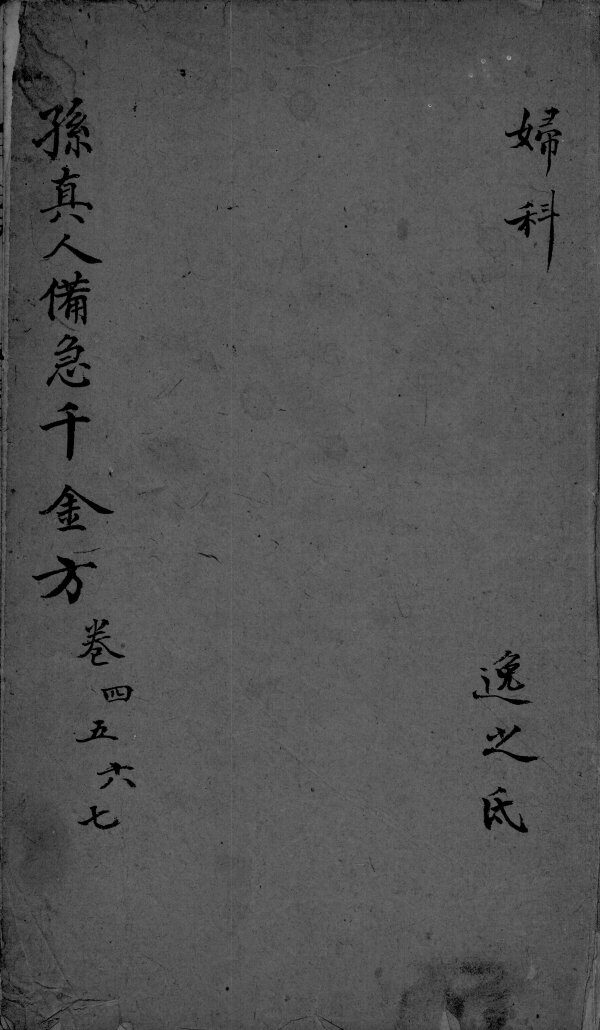 婦科
逸之氏
孫真人備急千金方
卷四五六七